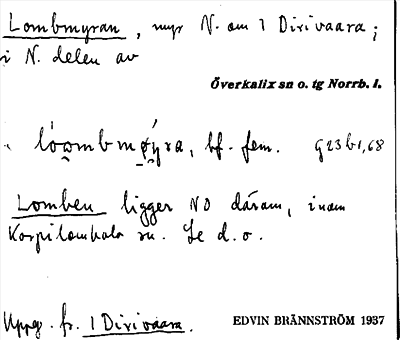 Lombmyran, myr N. om 1 Dirivaara;
i N. delen av
Överkalix sn o. tg Norrb. l.
bf. fem. g23b1,68
Lomben ligger NO därom, inom
Korpilombolo sn. Se d.o.
Uppg. fr. 1 Dirivaara.
EDVIN BRÄNNSTRÖM 1937